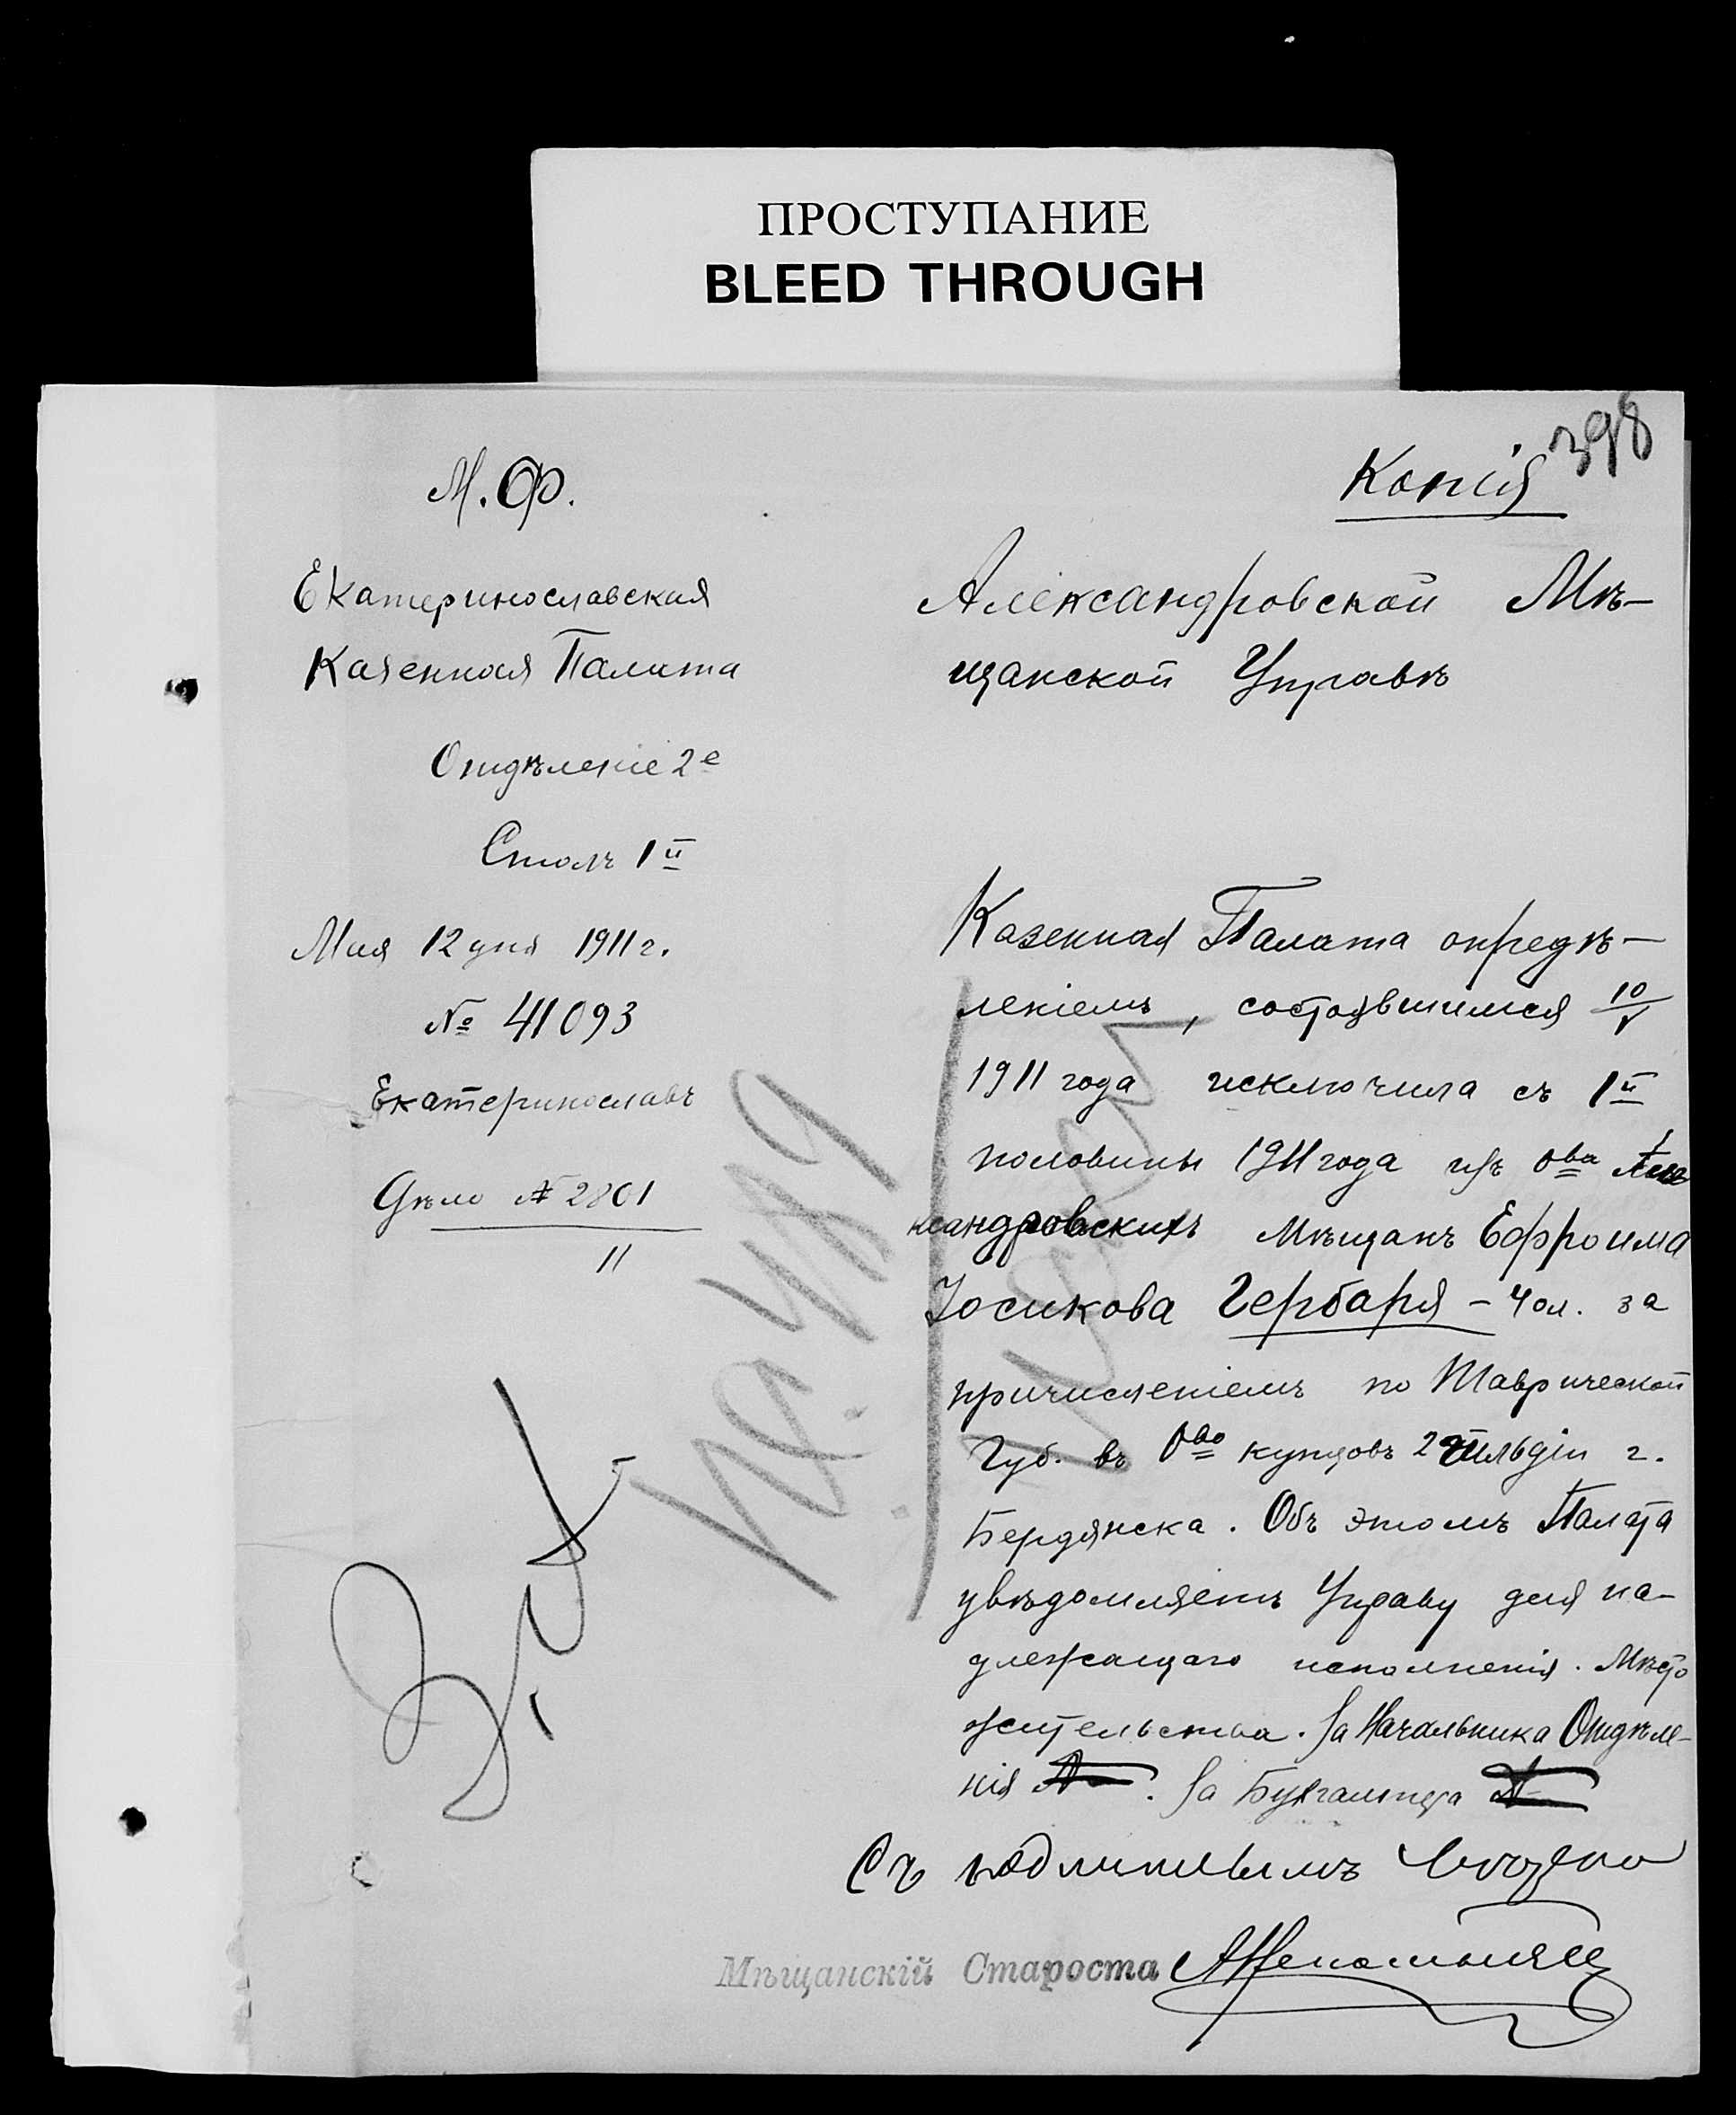 ПРОСТУПАНИЕ
BLEED THROUGH
398
М.Ф.
Копія
Екатеринославская
Казенная Палата
Отдѣленіе 2е
Столъ 1й
Мая 12 дня 1911 г.
№ 41093
Екатеринославъ
Дѣло № 2801
11
Александровской Мѣ-
щанской Управѣ
Казенная Палата опредѣ-
леніемъ, состоявшимся 10/V
1911 года исключила съ 1й
половины 1911 года изъ ова Але
ксандровскихъ мѣщанъ Ефроима
Іосикова Гербаря - за
причисленіемъ по Таврической
Губ. въ ово купцовъ 2 гильдіи г.
Бердянска. Объ этомъ Палата
увѣдомляетъ Управу для на-
длежащаго исполненія. Мѣсто
жительства. За Начальника Отдѣле-
нія. За Бухгалтера
Съ подлиннымъ вѣрно
Мѣщанскій Староста